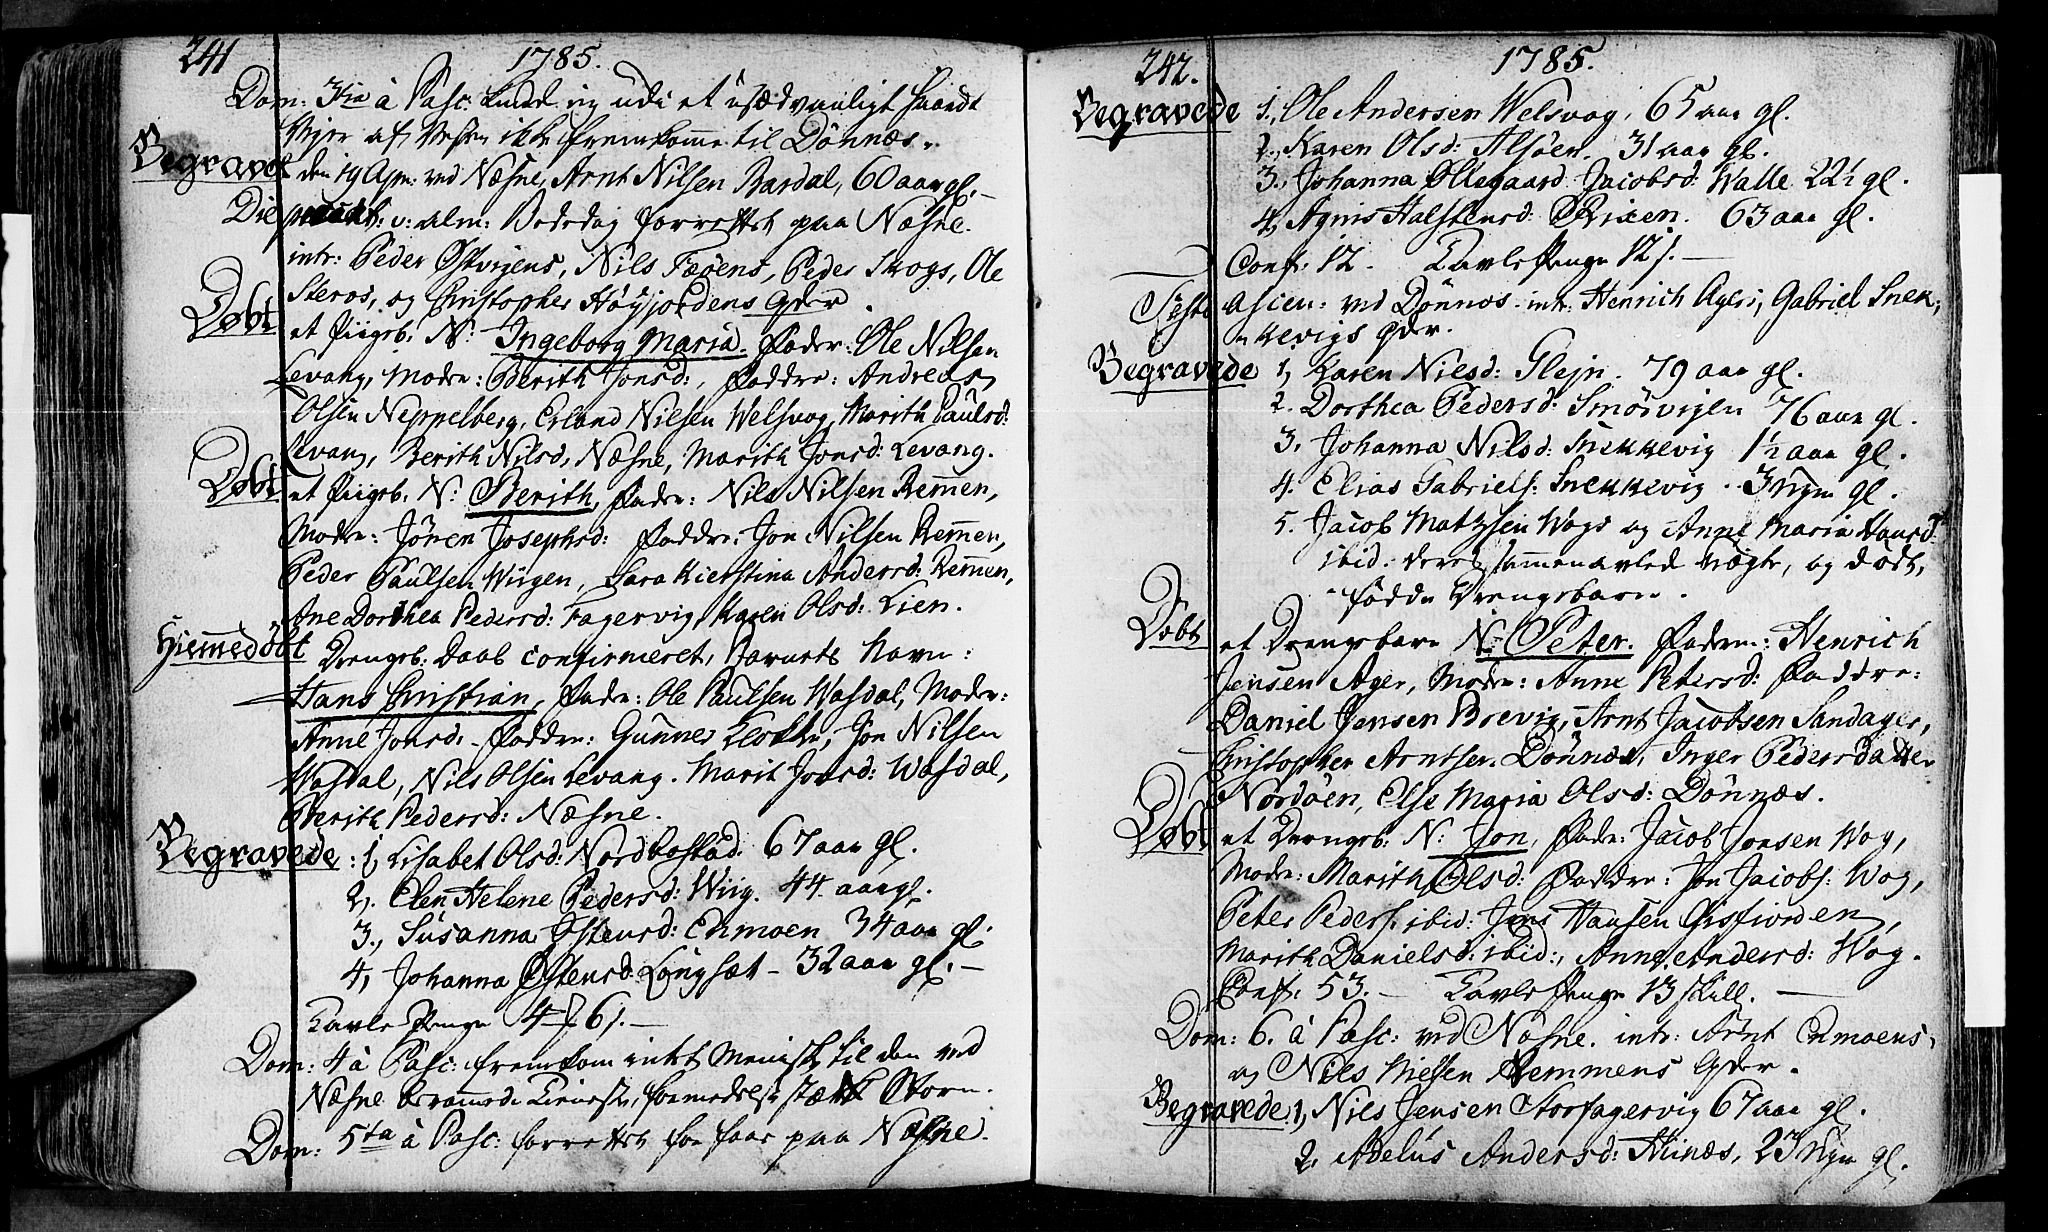 241
1785.
Dom: 3tia à Pasc: kunde ieg udi et usædvaanligt haardt
Vejer af Vesten ikke fremkomme til Dönnæs.
Begravet
den 19 Apr: ved Næsne, Arnt Nilsen Bardal, 60 aar gl. –
Die v: alm: Bededag forrettet paa Næsne.
intr: Peder Østvigens, Nils Fæøens, Peder Skogs, Ole
Steros, og Christopher Høyjordens qder.
Döbt
et Piigeb. N: Ingeborg Maria. Fader: Ole Nilsen
Levang, Moder: Berith Jonsd:, Faddre: Andreas
Olsen Neppelberg, Erland Nilsen Welsvog, Marith Paulsd:
Levang, Berith Nilsd, Næsne, Marith Jonsd: Levang.
Döbt
et Piigeb. N: Berith, Fader: Nils Nilsen Remmen,
Moder: Jören Josephsd: Faddre: Jon Nilsen Remmen,
Peder Paulsen Wiigen, Sara Kierstina Andersd: Remmen,
Ane Dorthea Pedersd: Fagervig, Karen Olsd: Lien.
Hiemmedöbt
Drengeb: Daab confirmeret, Barnets Navn:
Hans Christian, Fader: Ole Paulsen Wasdal, Moder:
Anne Jonsd. – Faddre: Gunner Klokker, Jon Nilsen
Wasdal, Nils Olsen Levang. Marit Jonsd: Wasdal,
Berith Pedersd: Næsne.
Begravede: 1, Lisabet Olsd: Nordbostad. 67 aar gl.
2, Elen Helene Pedersd: Wiig. 44 aar gl.
3., Susanna Østensd: Enmoen 34 aar gl.
4, Johanna Østensd: Longsæt – 32 aar gl. –
Tavle Penge 4 6 s. –
Dom: 4 à Pasc: fremkom intet Menisk til den ved
Næsne berammede Tieneste, formedelst stærk Storm.
Dom: 5ta à Pasc: forrettet for faae paa Næsne.
242.
1785.
Begravede
1., Ole Andersen Welsvog, 65 aar gl.
2., Karen Olsd: Alsöen. 31 aar gl.
3., Johanna Ollegaard Jacobsd: Walle 22½ gl.
4, Agnis Halstensd: Rixen. 63 aar gl.
Conf: 12. Tavle Penge 12 s. –
Festo Ascen: ved Dönnæs. intr: Henrich Agers, Gabriel Snek-
kevigs qder.
Begravede
1, Karen Nielsd: Glejn. 79 aar gl.
2. Dorthea Pedersd: Smörvigen 76 aar gl.
3. Johanna Nilsd: Snekkevig 1½ aar gl.
4. Elias Gabriels: Snekkevig. 3 ugr gl.
5. Jacob Matzsen Wogs og Anne Maria Hansd:
ibid: deres sammenavled uægte, og död-
födde Drengebarn.
Döbt
et Drengebarn N. Peter. Faderen: Henrich
Jensen Ager, Moder: Anne Petersd: Faddre:
Daniel Jensen Brevig, Arnt Jacobsen Sandager,
Christopher Arntsen Dönnæs, Inger Pedersdatter
Nordöen, Else Maria Olsd: Dönnæs.
Döbt
et Drengeb. N: Jon, Fader: Jacob Jonsen Wog,
Moder: Marith Olsd: Faddre: Jon Jacobs: Wog,
Peter Peders: ibid: Jens Hansen Eisfiorden,
Marith Danielsd: ibid:, Anne Andersd: Wog.
Conf: 53. – Tavle Penge 13 skill. –
Dom: 6. à Pasc: ved Næsne. intr: Arnt Enmoens,
og Nils Nielsen Hemmens qder.
Begravede 1, Nils Jensen Storfagervig 67 aar gl.
2. Adelus Andersd: Hunæs, 23 ugr gl.